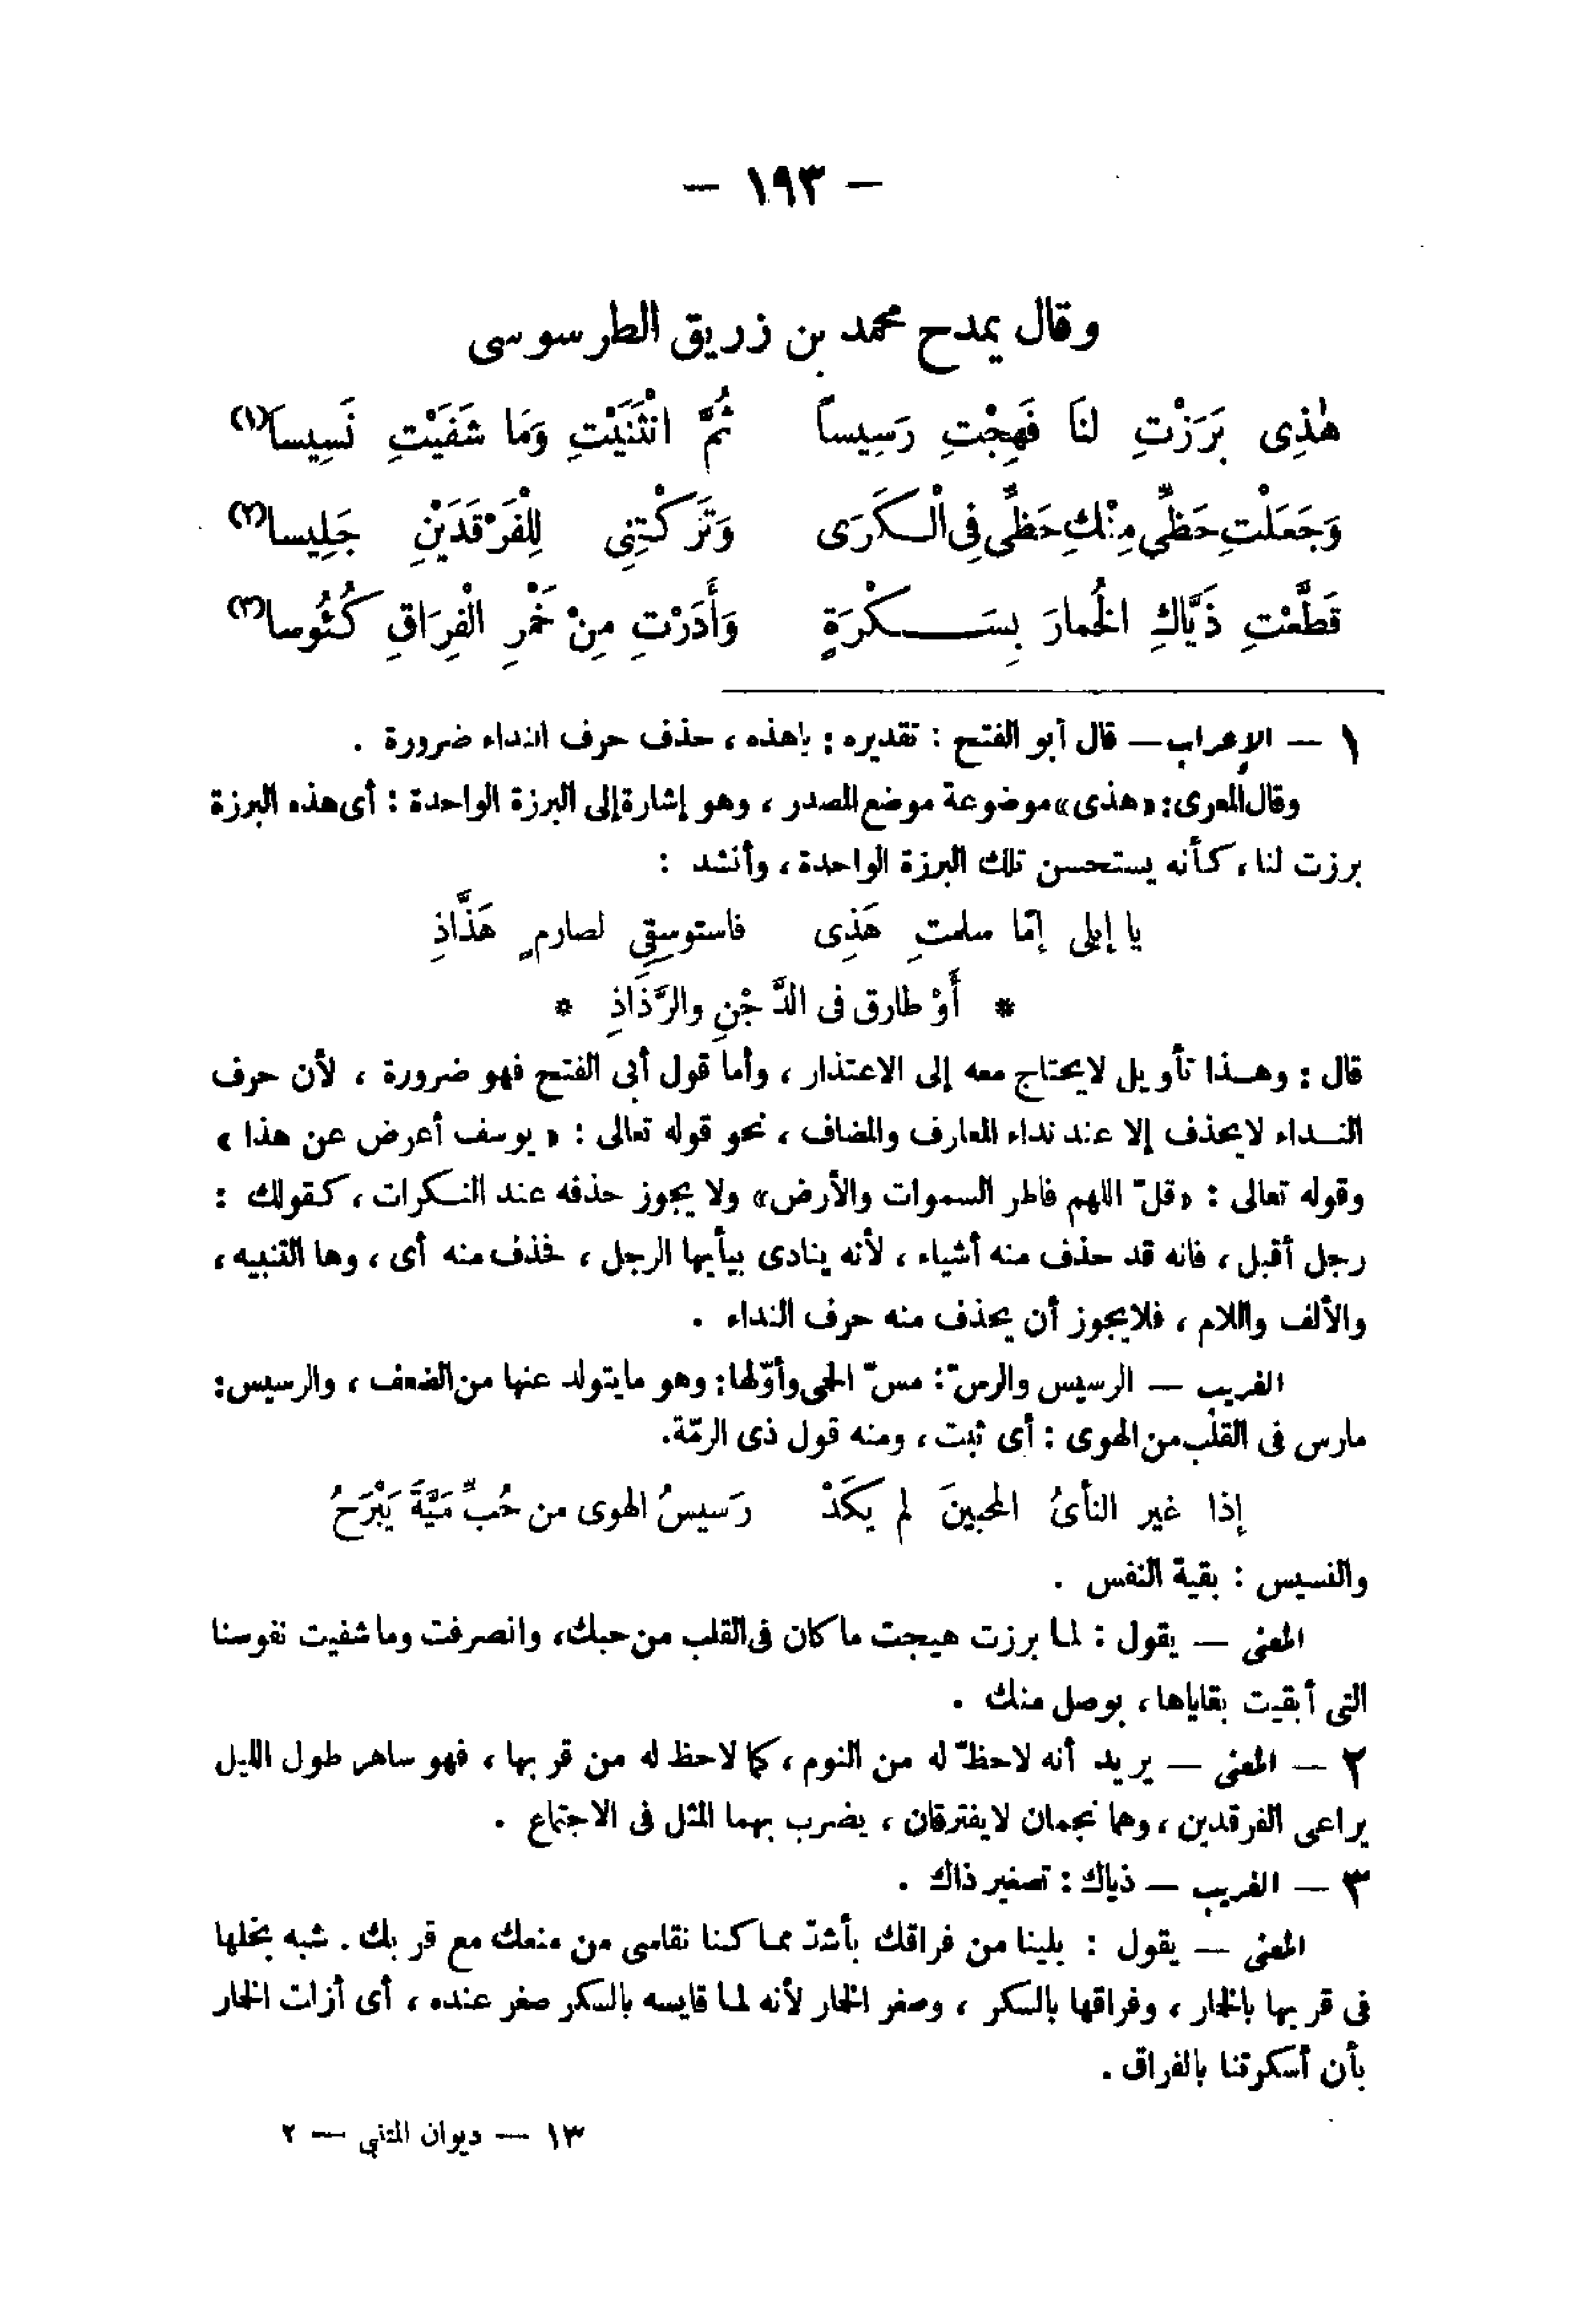 — ١٩٣ —
وقال يمدح محمد بن زريق الطرسوسى
هٰذِى بَرَزْتِ لَنَا فَهِجْتِ رَسِيساً ثُمَّ انْثَنَيْتِ وَمَا شَفَيْتِ نَسِيسَا(١)
وَجَعَلْتِ حَظِّى مِنْكِ حَظِّى فِى الْكَرَى وَتَرَكْتِنِى لِلْفَرْقَدَيْنِ جَلِيسا(٢)
قَطَّعْتِ ذَيَّاكِ الْخُمارَ بِسَكْرَةٍ وَأَدَرْتِ مِنْ خَمْرِ الْفِرَاقِ كُئُوسا(٣)
١ — الإعراب — قال أبو الفتح : تقديره : ياهذه ، حذف حرف النداء ضرورة .
وقال المعرى : «هذى» موضوعة موضع المصدر ، وهو إشارة إلى البرزة الواحدة : أى هذه البرزة
برزت لنا ، كأنه يستحسن تلك البرزة الواحدة ، وأنشد :
يا إبلى إمّا سلمتِ هَذِى فاستوسِقِى لصارمٍ هَذَّاذِ
* أَوْ طارق فى الدَّجْنِ والرَّذَاذِ *
قال : وهذا تأويل لايحتاج معه إلى الاعتذار ، وأما قول أبى الفتح فهو ضرورة ، لأن حرف
النداء لايحذف إلا عند نداء المعارف والمضاف ، نحو قوله تعالى : « يوسف أعرض عن هذا »
وقوله تعالى : «قلّ اللهم فاطر السموات والأرض» ولا يجوز حذفه عند النكرات ، كقولك :
رجل أقبل ، فانه قد حذف منه أشياء ، لأنه ينادى بيأيها الرجل ، فحذف منه أى ، وها التنبيه ،
والألف واللام ، فلايجوز أن يحذف منه حرف النداء .
الغريب — الرسيس والرسّ : مسّ الحمى وأوّلها : وهو مايتولد عنها من الضعف ، والرسيس :
مارس فى القلب من الهوى : أى ثبت ، ومنه قول ذى الرمّة.
إذا غير النأىُ المحبينَ لم يكَدْ رَسيسُ الهوى من حُبِّ مَيَّةَ يَبْرَحُ
والنسيس : بقية النفس .
المعنى — يقول : لما برزت هيجت ما كان فى القلب من حبك ، وانصرفت وما شفيت نفوسنا
التى أبقيت بقاياها ، بوصل منك .
٢ — المعنى — يريد أنه لاحظّ له من النوم ، كما لاحظ له من قربها ، فهو ساهر طول الليل
يراعى الفرقدين ، وهما نجمان لايفترقان ، يضرب بهما المثل فى الاجتماع .
٣ — الغريب — ذياك : تصغير ذاك .
المعنى — يقول : بلينا من فراقك بأشدّ مما كنا نقاسى من منعك مع قربك . شبه بخلها
فى قربها بالخمار ، وفراقها بالسكر ، وصغر الخمار لأنه لما قايسه بالسكر صغر عنده ، أى أزلت الخمار
بأن أسكرتنا بالفراق .
١٣ — ديوان المتنبي — ٢